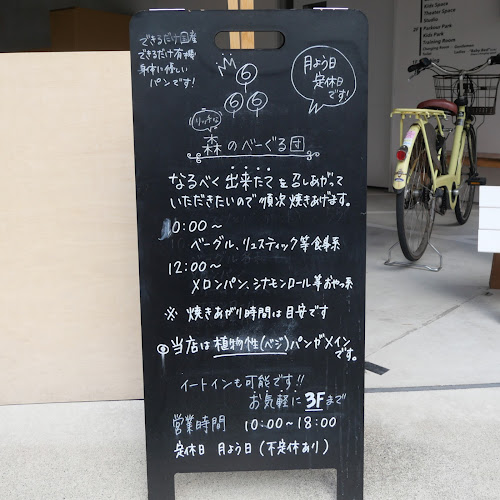 できるだけ国産
できるだけ有機
身体に優しい
パンです!
月よう日
定休日
です!
6
6 6
リッチな
森のべーぐる団
なるべく出来たてを召しあがって
いただきたいので順次焼きあげます。
10:00〜
ベーグル、リュスティック等食事系
12:00〜
メロンパン、シナモンロール等おやつ系
※ 焼きあがり時間は目安です
◎当店は植物性(ベジ)パンがメイン
です。
イートインも可能です!!
お気軽に3Fまで
営業時間 10:00〜18:00
定休日 月よう日(不定休あり)
Kids Space
Theater Space
Studio
2F Parkour Park
Kids Park
Training Room